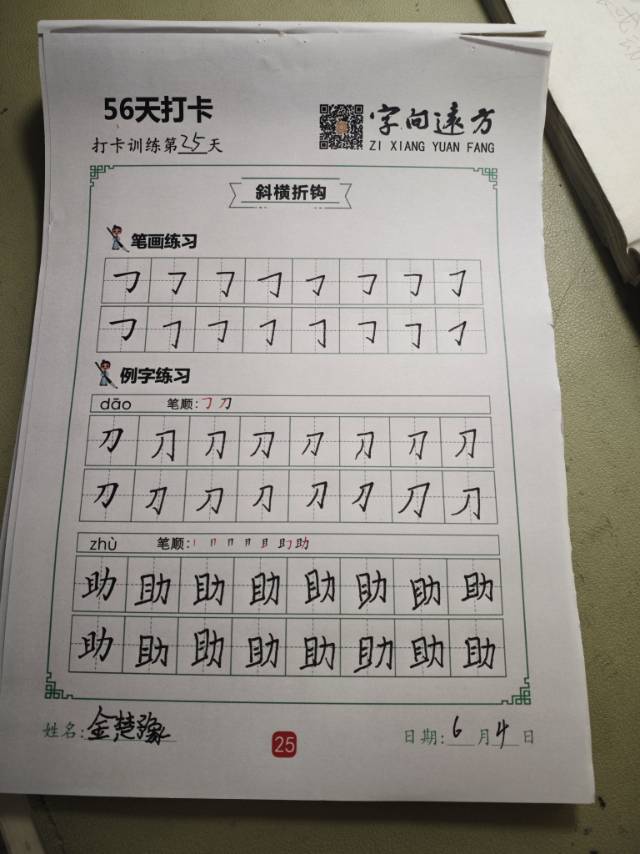 56天打卡
打卡训练第25天
字向远方
ZI XIANG YUAN FANG
斜横折钩
笔画练习
㇆㇆㇆㇆㇆㇆㇆㇆
㇆㇆㇆㇆㇆㇆㇆㇆
例字练习
dāo 笔顺:㇆刀
刀刀刀刀刀刀刀刀
刀刀刀刀刀刀刀刀
zhù 笔顺:
助助助助助助助助
助助助助助助助助
姓名:金楚豫
25
日期:6月4日